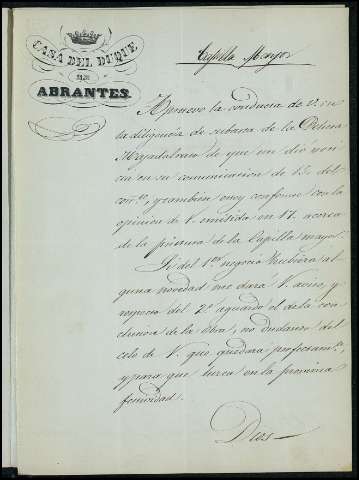 CASA DEL DUQUE
DE
ABRANTES.
Capilla Mayor
Apruevo la conducta de V. en
la diligencia de subasta de la Dehesa
de que me dió noti
cia en su comunicacion de 13 del
corr.te, y tambien estoy conforme con la
opinion de V. emitida en 17 acerca
de la pintura de la Capilla mayor.
Si del 1.er negocio hubiera al
guna novedad me dará V. aviso, y
respecto del 2.º aguardo el de la con
clusion de la obra, no dudando del
celo de V. que quedará perfectam.te
y para que luzca en la procsima
festividad.
Dios